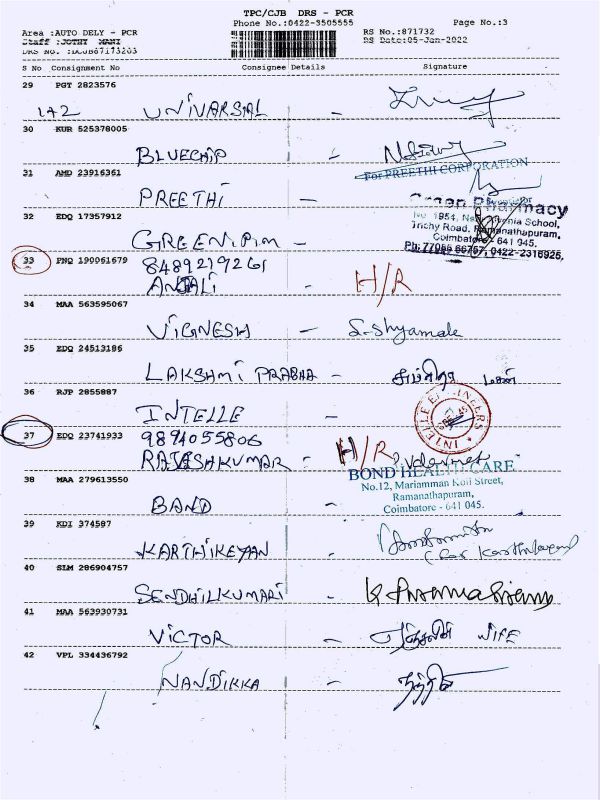 TPC/CJB DRS - PCR
Phone No.:0422-3505555
Page No.:3
Area :AUTO DELY - PCR
RS No.:871732
Staff :JOTHY MANI
DRS Date:05-Jan-2022
S No Consignment No Consignee Details Signature
29 PGT 2823576
142 UNIVARSAL -
30 KUR 525378005
BLUECHIP -
For PREETHI CORPORATION
31 AMD 23916361
PREETHI -
32 EDQ 17357912
Green Pharmacy
School,
Trichy Road, Ramanathapuram,
Coimbatore - 641 045.
0422-2316925,
GREEN.P.M -
33 PNQ 190061679
8489219261
ANJALI - H/R
34 MAA 563595067
VIGNESH - S. Shyamala
35 EDQ 24513186
LAKSHMI PRABHA -
36 RJP 2855887
INTELLE -
37 EDQ 23741933
9894055806
RAJESHKUMAR - H/R
BOND HEALTH CARE
No.12, Mariamman Koil Street,
Ramanathapuram,
Coimbatore - 641 045.
38 MAA 279613550
BAND -
39 KDI 374587
KARTHIKEYAN
40 SLM 286904757
SENDHILKUMARI -
41 MAA 563930731
VICTOR - WIFE
42 VPL 334436792
NANDIKKA -